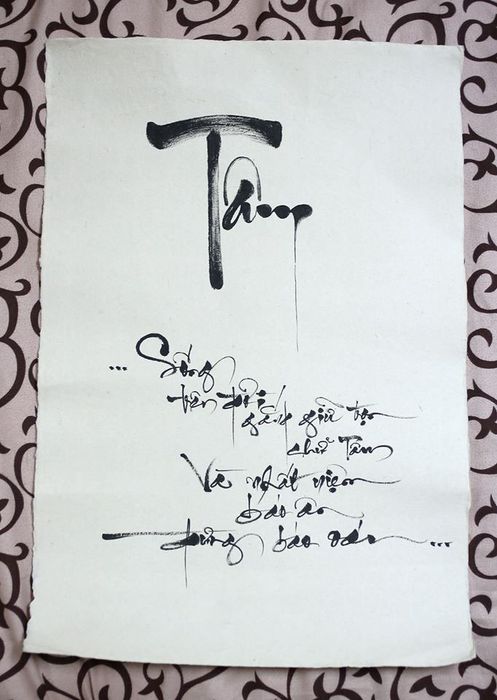 Tâm
... Sống
trên đời
gắng giữ trọn
chữ Tâm
Và nhất niệm
báo ân
đừng báo oán ...